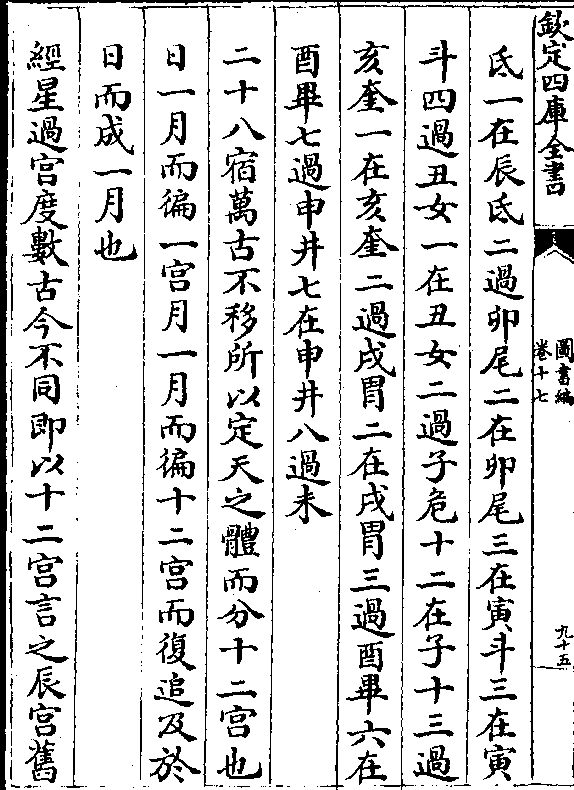 欽定四庫全書
圖書編
卷十七
九十五
氐一在辰氐二過卯尾二在卯尾三在寅斗三在寅
斗四過丑女一在丑女二過子危十二在子十三過
亥奎一在亥奎二過戌胃二在戌胃三過酉畢六在
酉畢七過申井七在申井八過未
二十八宿萬古不移所以定天之體而分十二宮也
日一月而徧一宮月一月而徧十二宮而復追及於
日而成一月也
經星過宮度數古今不同即以十二宮言之辰宮舊